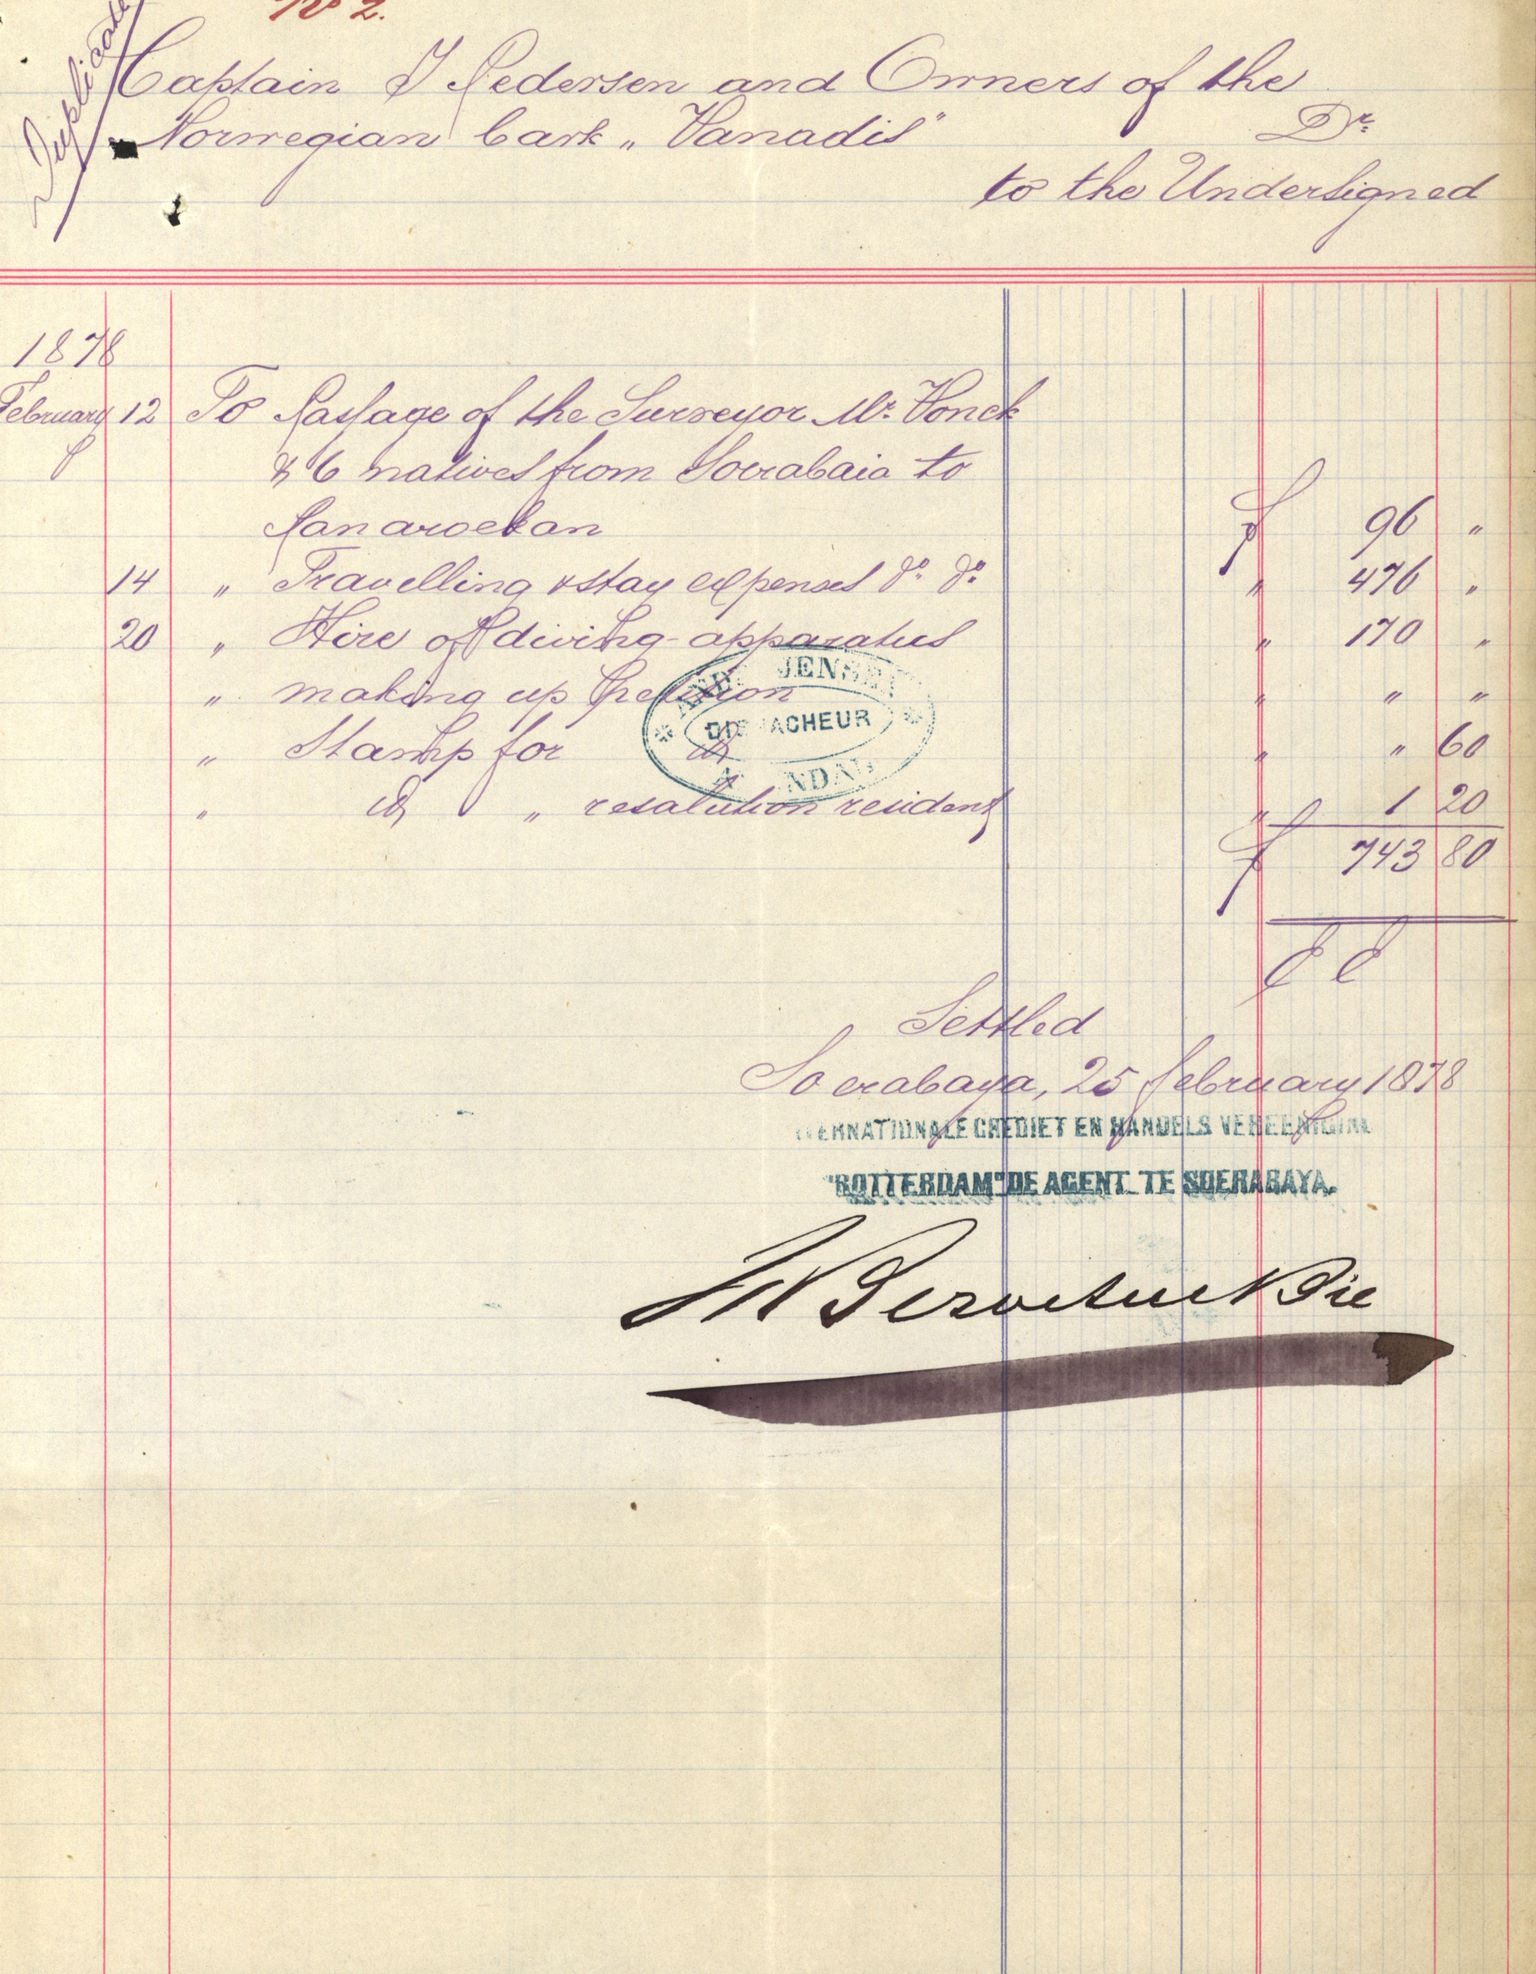 No 2.
Duplicate
Captain J Pedersen and Owners of the
Norwegian bark „Vanadis" Dr.
to the Undersigned
1878
February 12 To Passage of the Surveyor Mr. Vonck
& 6 natives from Soerabaia to
Panaroekan f 96 "
14 " Travelling & stay expenses do. do. " 476 "
20 " Hire of diving-apparatus " 170 "
" making up Petition " " "
" Stamp for do " " 60
" do " resolution resident " 1 20
f 743 80
ANDR JENSEN
DISPACHEUR
ARENDAL
Settled
Soerabaya, 25 february 1878
INTERNATIONALE CREDIET EN HANDELS VEREENIGING
"ROTTERDAM" DE AGENT TE SOERABAYA.